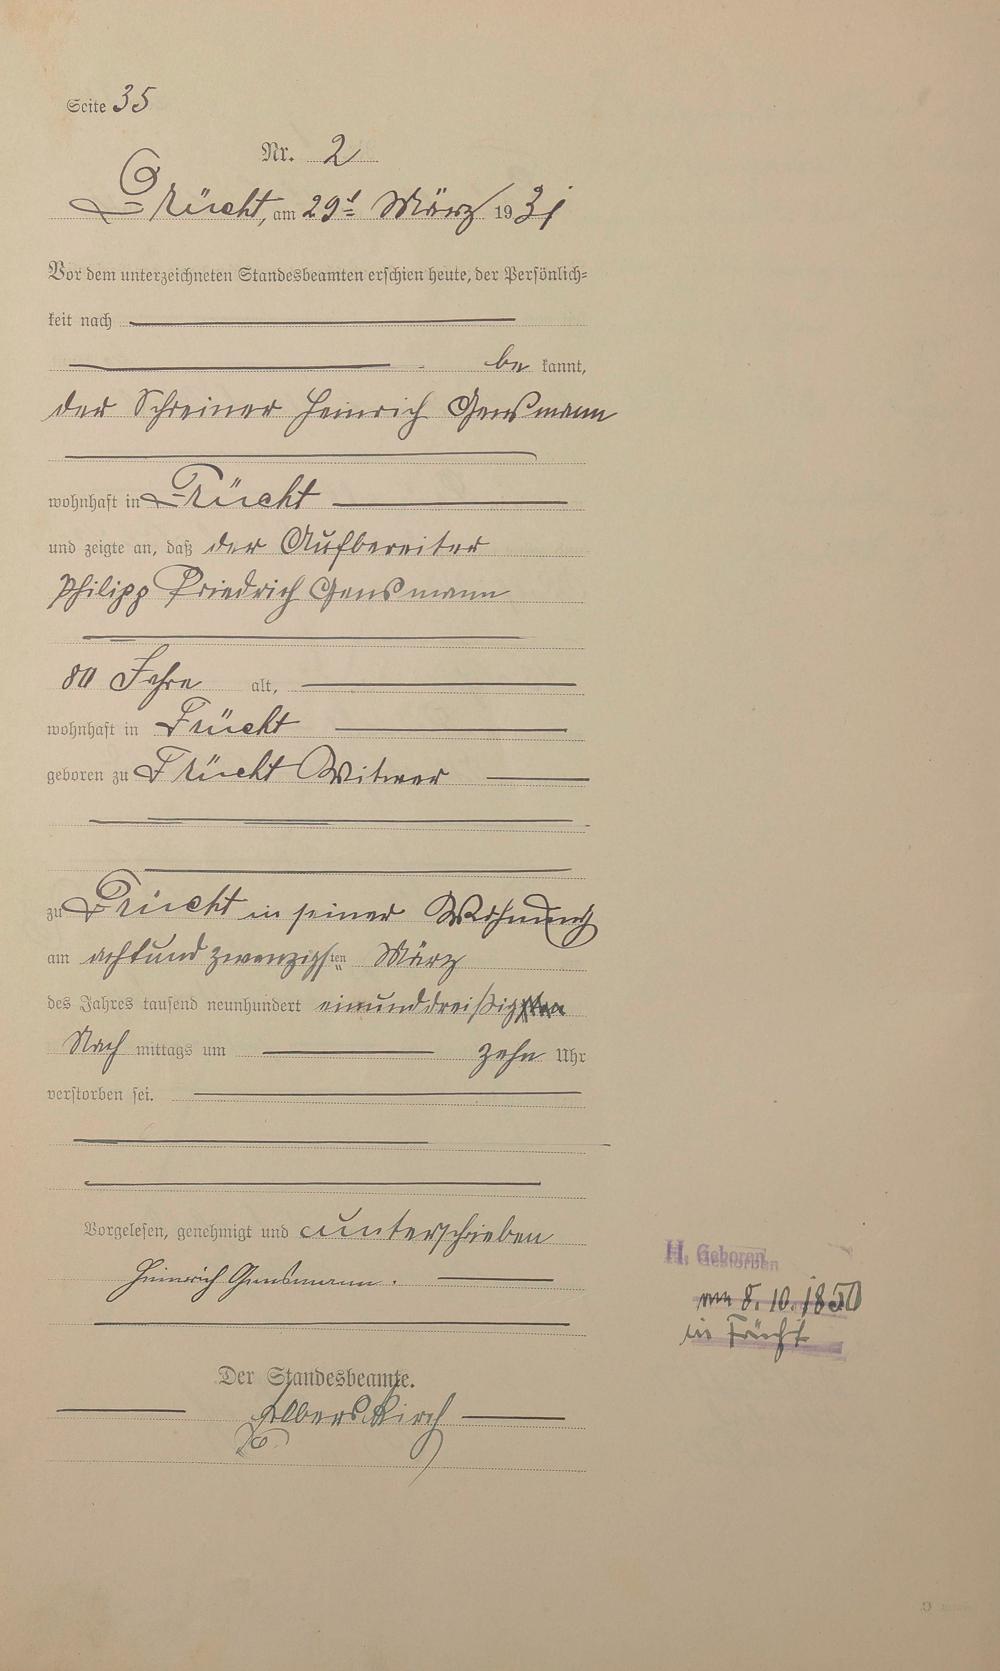 Seite 35
Nr. 2
Frücht, am 29t März 1931
Vor dem unterzeichneten Standesbeamten erschien heute, der Persönlich-
keit nach
be kannt,
der Schreiner Heinrich Gensmann
wohnhaft in Frücht
und zeigte an, daß der Aufbereiter
Philipp Friedrich Gensmann
80 Jahre alt,
wohnhaft in Frücht
geboren zu Frücht Witwer
zu Frücht in seiner Wohnung
am achtundzwanzigsten März
des Jahres tausend neunhundert einunddreißig
Nach mittags um zehn Uhr
verstorben sei.
Vorgelesen, genehmigt und unterschrieben
Heinrich Gensmann.
Der Standesbeamte.
H. Geboren
am 8.10.1850
in Frücht